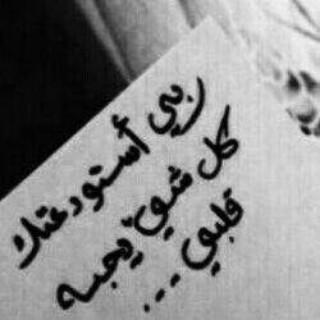 ربي أستودعتك
كل شيئ يحبه
قلبي...